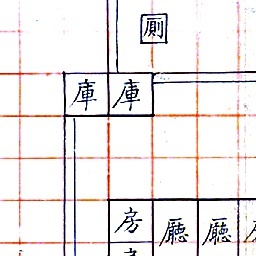 厠
庫 庫
房 廳 廳